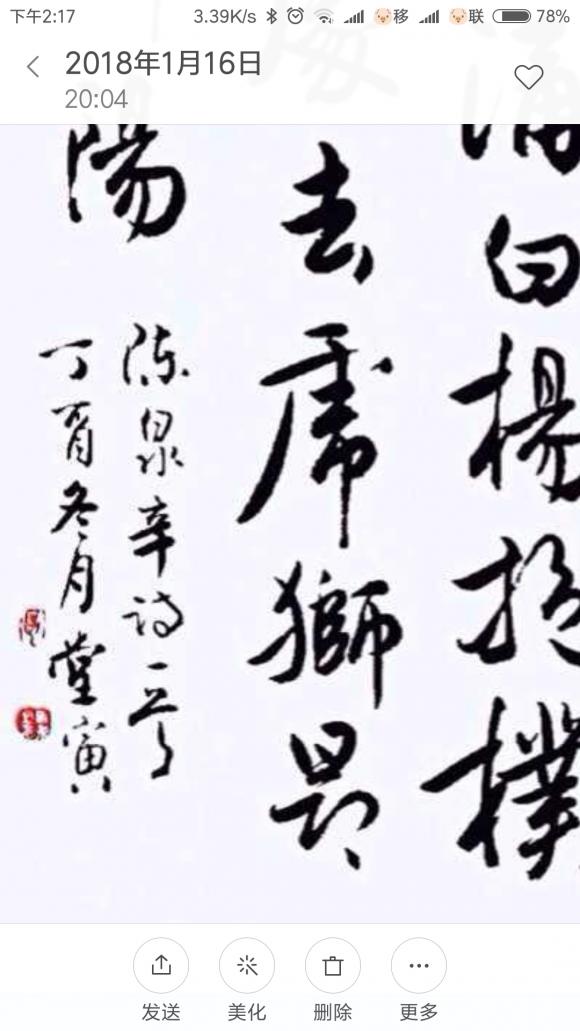 下午2:17 3.39K/s 移 联 78%
2018年1月16日
20:04
白楊 撲
去 獅
陽
陳泉辛詩一首
丁酉冬月堂寅
发送 美化 删除 更多